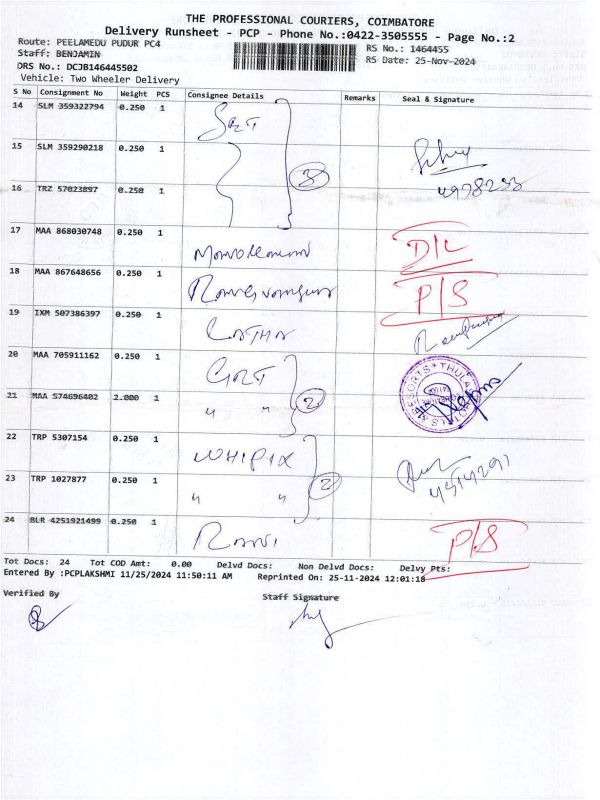 THE PROFESSIONAL COURIERS, COIMBATORE
Delivery Runsheet - PCP - Phone No.:0422-3505555 - Page No.:2
Route: PEELAMEDU PUDUR PC4
RS No.: 1464455
Staff: BENJAMIN
RS Date: 25-Nov-2024
DRS No.: DCJB146445502
Vehicle: Two Wheeler Delivery
S No Consignment No Weight PCS Consignee Details Remarks Seal & Signature
14 SLM 359322794 0.250 1
15 SLM 359290218 0.250 1
3
16 TRZ 57023897 0.250 1
17 MAA 868030748 0.250 1 D/L
18 MAA 867648656 0.250 1 P/S
19 IXM 507386397 0.250 1
20 MAA 705911162 0.250 1 GRT
21 MAA 574696402 2.000 1 " " 2
22 TRP 5307154 0.250 1
23 TRP 1027877 0.250 1 " " 2
24 BLR 4251921499 0.250 1 P/S
Tot Docs: 24 Tot COD Amt: 0.00 Delvd Docs: Non Delvd Docs: Delvy Pts:
Entered By :PCPLAKSHMI 11/25/2024 11:50:11 AM Reprinted On: 25-11-2024 12:01:18
Verified By Staff Signature